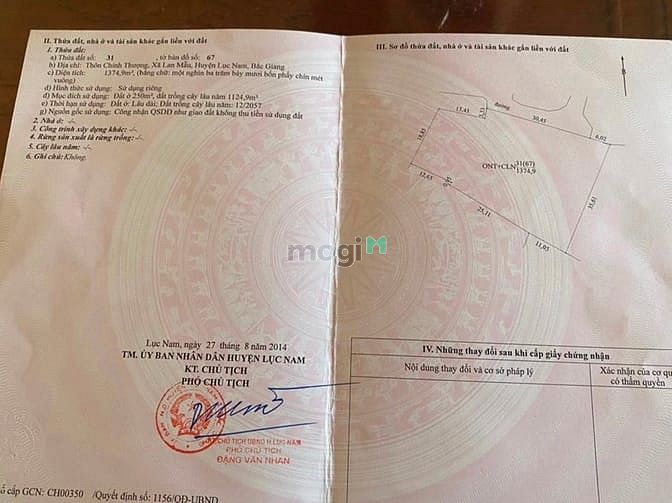 II. Thửa đất, nhà ở và tài sản khác gắn liền với đất
1. Thửa đất:
a) Thửa đất số: 31 , tờ bản đồ số: 67
b) Địa chỉ: Thôn Chính Thượng, Xã Lan Mẫu, Huyện Lục Nam, Bắc Giang
c) Diện tích: 1374,9m², (bằng chữ: một nghìn ba trăm bảy mươi bốn phẩy chín mét
vuông)
d) Hình thức sử dụng: Sử dụng riêng
đ) Mục đích sử dụng: Đất ở 250m², Đất trồng cây lâu năm 1124,9m²
e) Thời hạn sử dụng: Đất ở: Lâu dài; Đất trồng cây lâu năm: 12/2057
g) Nguồn gốc sử dụng: Công nhận QSDĐ như giao đất không thu tiền sử dụng đất
2. Nhà ở: -/-
3. Công trình xây dựng khác: -/-
4. Rừng sản xuất là rừng trồng: -/-
5. Cây lâu năm: -/-
6. Ghi chú: Không.
Lục Nam, ngày 27 tháng 8 năm 2014
TM. ỦY BAN NHÂN DÂN HUYỆN LỤC NAM
KT. CHỦ TỊCH
PHÓ CHỦ TỊCH
PHÓ CHỦ TỊCH
ĐẶNG VĂN NHÀN
Số cấp GCN: CH00350 /Quyết định số: 1156/QĐ-UBND
III. Sơ đồ thửa đất, nhà ở và tài sản khác gắn liền với đất
B
đường
17,45
30,45
6,02
18,85
ONT+CLN 31(67)
1374,9
35,81
12,65
25,11
11,05
mogi
IV. Những thay đổi sau khi cấp giấy chứng nhận
Nội dung thay đổi và cơ sở pháp lý
Xác nhận của cơ qu
có thẩm quyền